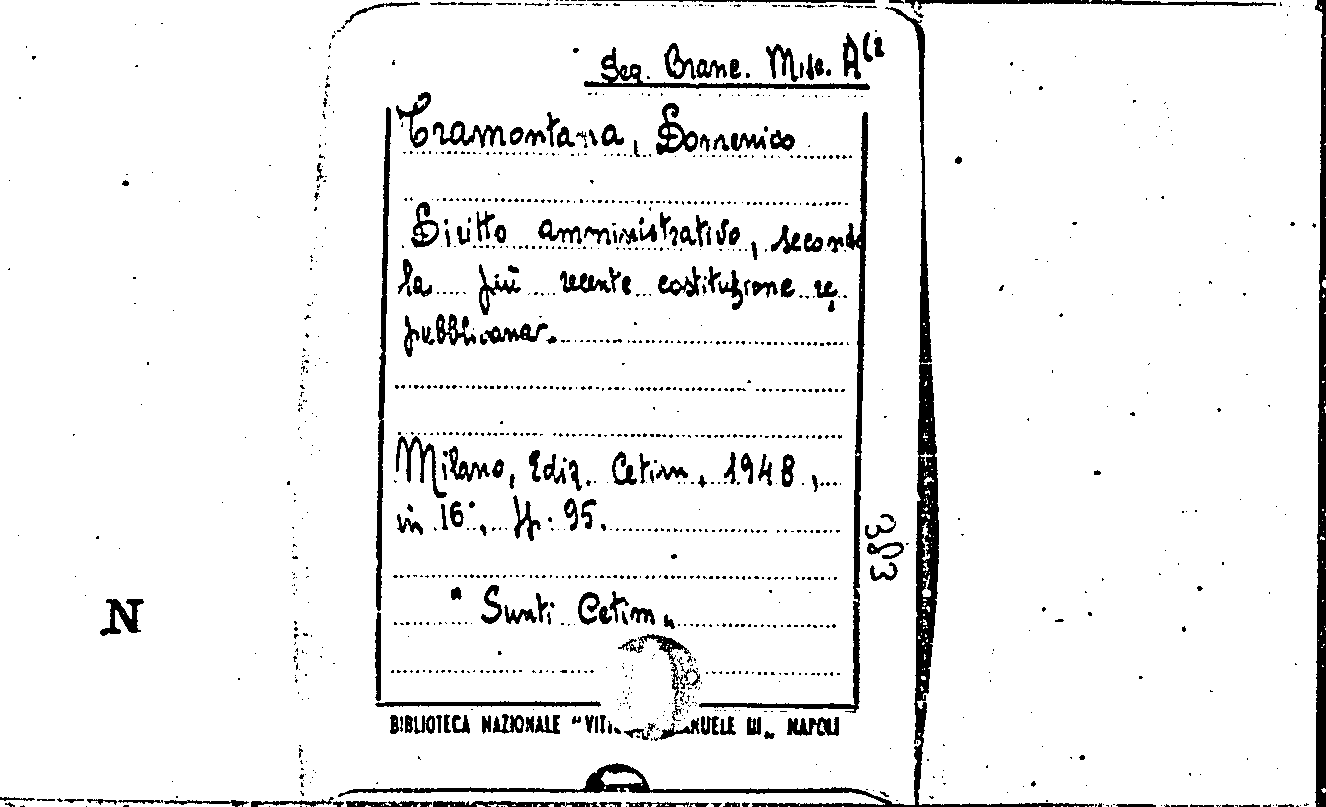 Seq. Branc. Misc. A
Tramontana, Domenico
Diritto amministrativo, secondo
la più recente costituzione re
pubblicana.
Milano, Ediz. Cetim, 1948,
in 16°, pp. 95.
383
"Sunti Cetim"
N
BIBLIOTECA NAZIONALE NAPOLI